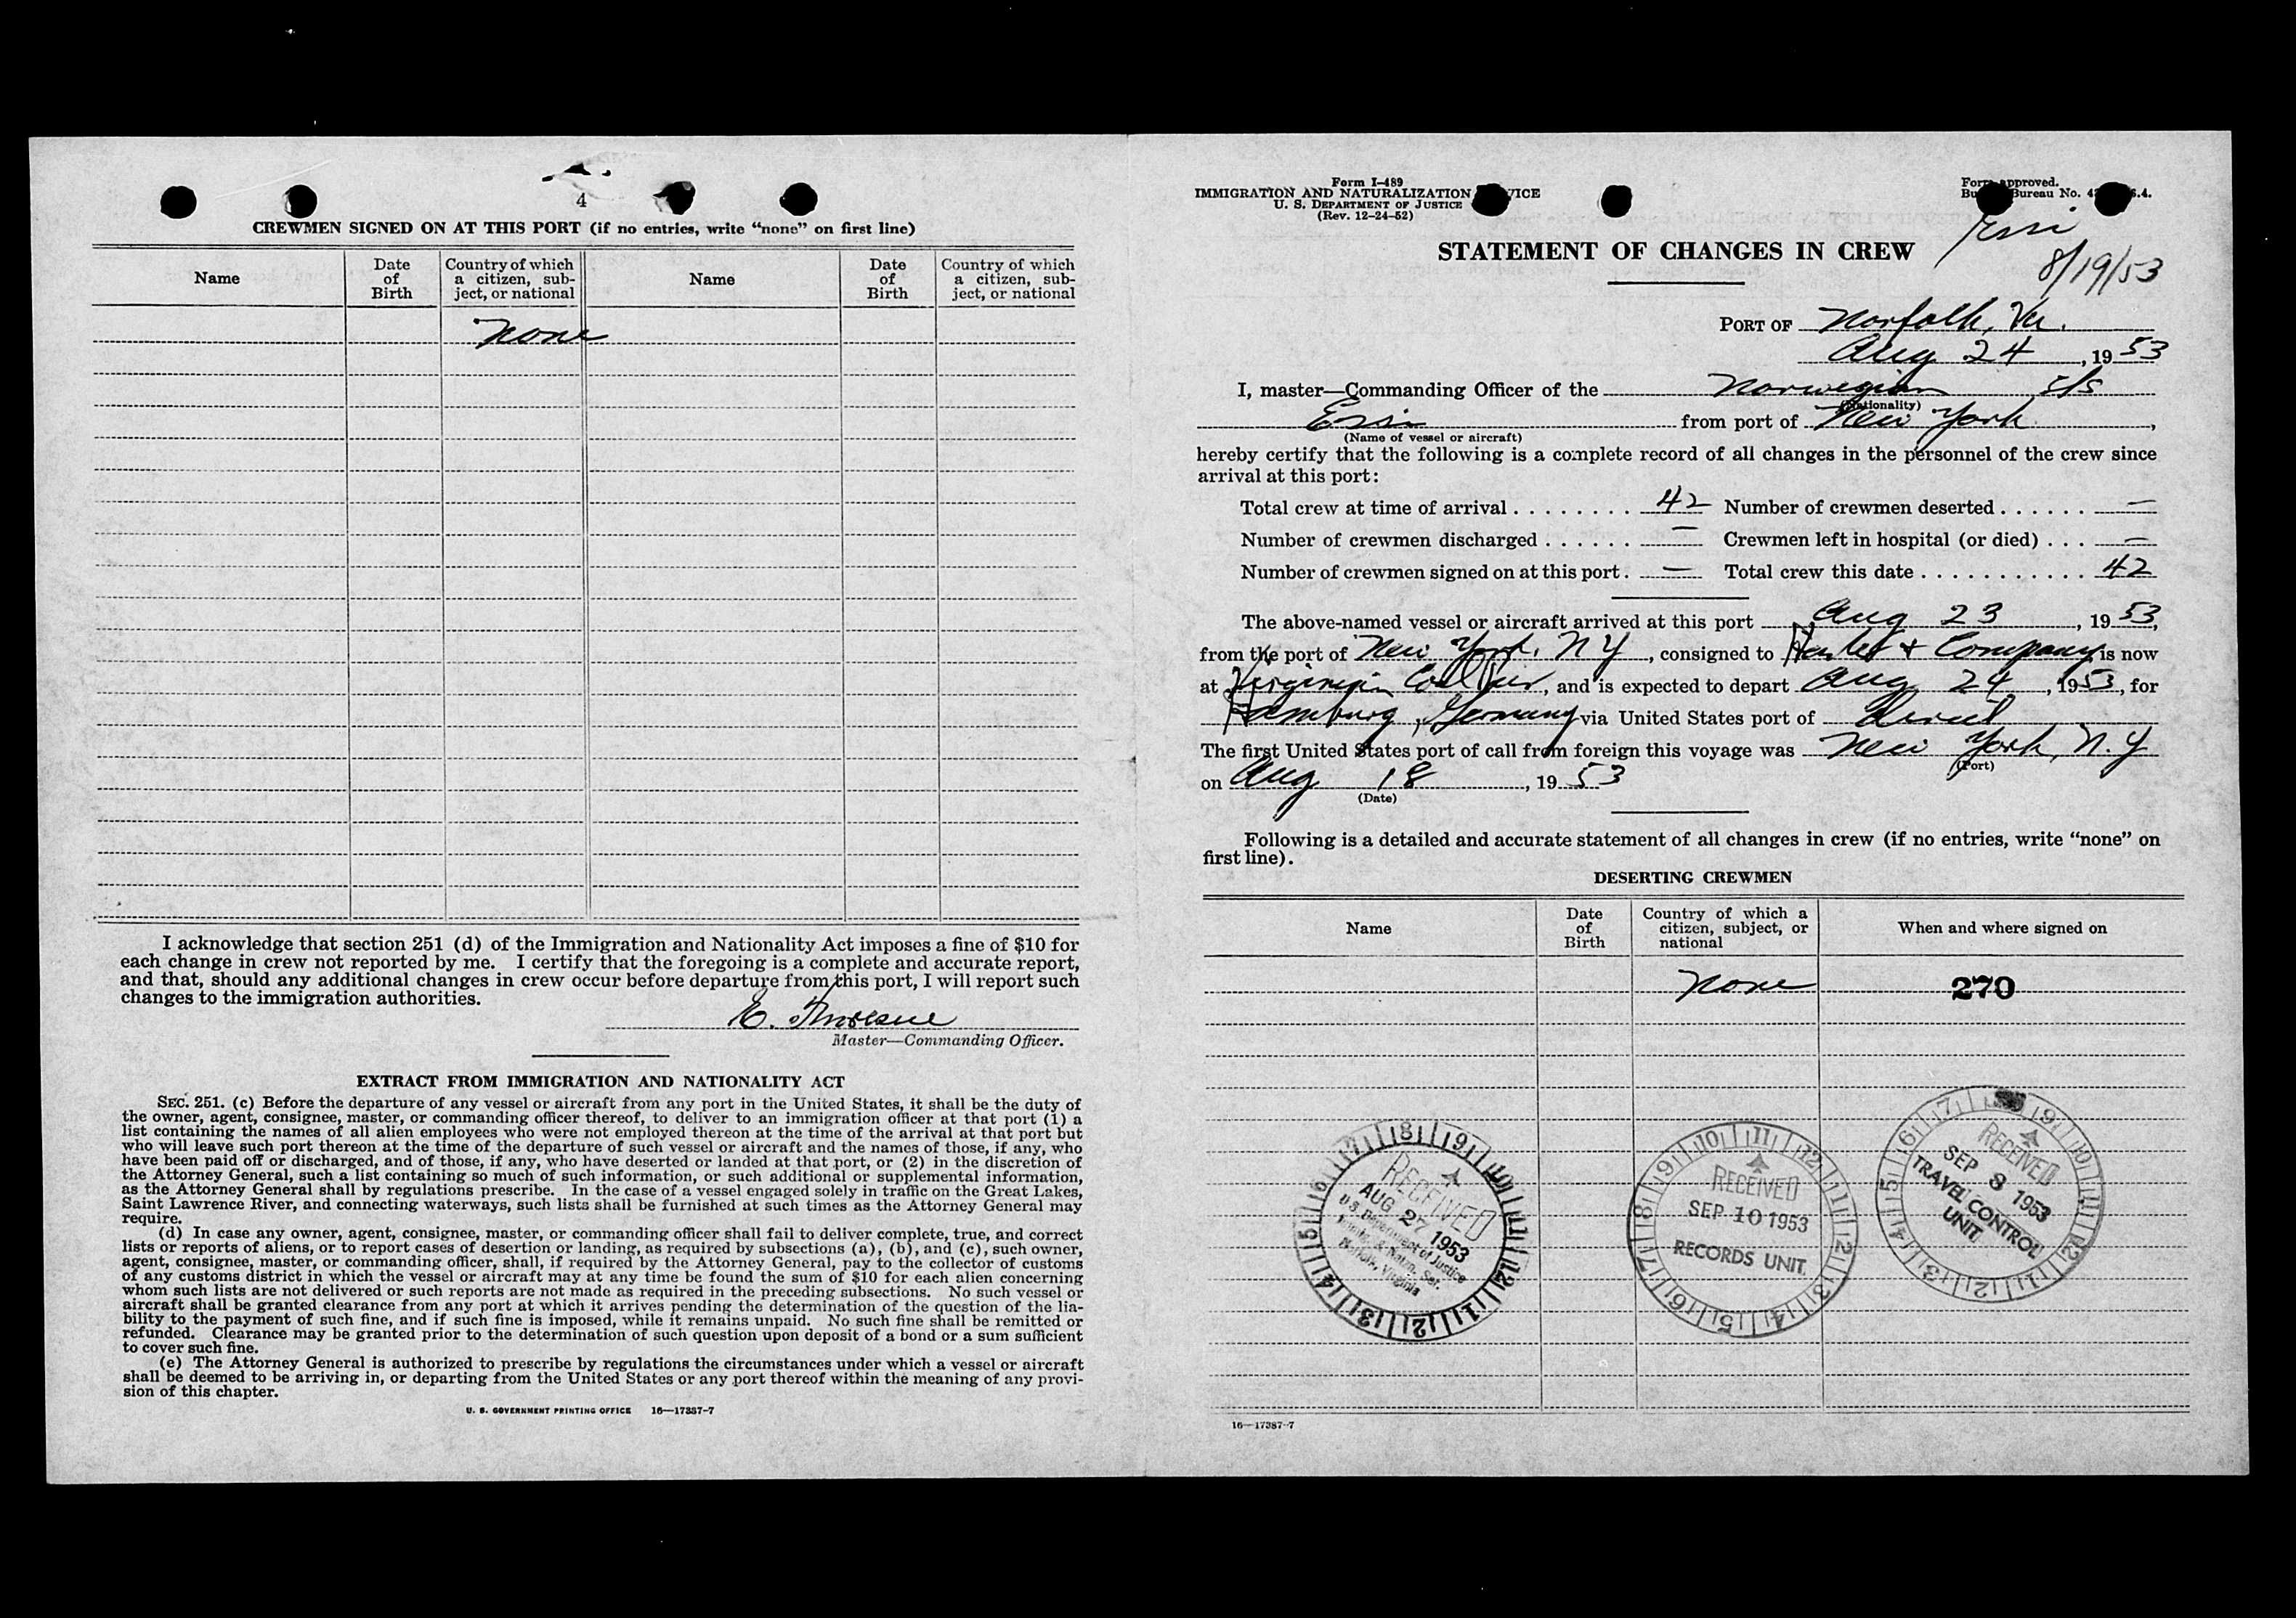 4
CREWMEN SIGNED ON AT THIS PORT (if no entries, write "none" on first line)
Name
Date of Birth
Country of which a citizen, subject, or national
Name
Date of Birth
Country of which a citizen, subject, or national
None
I acknowledge that section 251 (d) of the Immigration and Nationality Act imposes a fine of $10 for
each change in crew not reported by me. I certify that the foregoing is a complete and accurate report,
and that, should any additional changes in crew occur before departure from this port, I will report such
changes to the immigration authorities.
E.
Master—Commanding Officer.
EXTRACT FROM IMMIGRATION AND NATIONALITY ACT
SEC. 251. (c) Before the departure of any vessel or aircraft from any port in the United States, it shall be the duty of
the owner, agent, consignee, master, or commanding officer thereof, to deliver to an immigration officer at that port (1) a
list containing the names of all alien employees who were not employed thereon at the time of the arrival at that port but
who will leave such port thereon at the time of the departure of such vessel or aircraft and the names of those, if any, who
have been paid off or discharged, and of those, if any, who have deserted or landed at that port, or (2) in the discretion of
the Attorney General, such a list containing so much of such information, or such additional or supplemental information,
as the Attorney General shall by regulations prescribe. In the case of a vessel engaged solely in traffic on the Great Lakes,
Saint Lawrence River, and connecting waterways, such lists shall be furnished at such times as the Attorney General may
require.
(d) In case any owner, agent, consignee, master, or commanding officer shall fail to deliver complete, true, and correct
lists or reports of aliens, or to report cases of desertion or landing, as required by subsections (a), (b), and (c), such owner,
agent, consignee, master, or commanding officer, shall, if required by the Attorney General, pay to the collector of customs
of any customs district in which the vessel or aircraft may at any time be found the sum of $10 for each alien concerning
whom such lists are not delivered or such reports are not made as required in the preceding subsections. No such vessel or
aircraft shall be granted clearance from any port at which it arrives pending the determination of the question of the lia-
bility to the payment of such fine, and if such fine is imposed, while it remains unpaid. No such fine shall be remitted or
refunded. Clearance may be granted prior to the determination of such question upon deposit of a bond or a sum sufficient
to cover such fine.
(e) The Attorney General is authorized to prescribe by regulations the circumstances under which a vessel or aircraft
shall be deemed to be arriving in, or departing from the United States or any port thereof within the meaning of any provi-
sion of this chapter.
U. S. GOVERNMENT PRINTING OFFICE 16—17387-7
Form I-489
IMMIGRATION AND NATURALIZATION
U. S. DEPARTMENT OF JUSTICE
(Rev. 12-24-52)
approved.
Bureau No.
8/19/53
STATEMENT OF CHANGES IN CREW
PORT OF Norfolk, Va.
Aug 24, 1953
I, master—Commanding Officer of the Norwegian S/S
(Nationality)
Essi from port of New York,
(Name of vessel or aircraft)
hereby certify that the following is a complete record of all changes in the personnel of the crew since
arrival at this port:
Total crew at time of arrival . . . . . . . . 42 Number of crewmen deserted . . . . . . —
Number of crewmen discharged . . . . . . — Crewmen left in hospital (or died) . . . —
Number of crewmen signed on at this port . — Total crew this date . . . . . . . . . . . . 42
The above-named vessel or aircraft arrived at this port Aug 23, 1953,
from the port of New York, NY, consigned to & Company is now
at Virginian, and is expected to depart Aug 24, 1953, for
Hamburg, Germany via United States port of Direct
The first United States port of call from foreign this voyage was New York, N.Y
(Port)
on Aug 18, 1953
(Date)
Following is a detailed and accurate statement of all changes in crew (if no entries, write "none" on
first line).
DESERTING CREWMEN
Name
Date of Birth
Country of which a citizen, subject, or national
When and where signed on
None
270
RECEIVED
AUG 27 1953
U.S. Department of Justice
Immig. & Natzn. Ser.
Norfolk, Virginia
RECEIVED
SEP 10 1953
RECORDS UNIT.
RECEIVED
SEP 8 1953
TRAVEL CONTROL
UNIT
16—17387-7